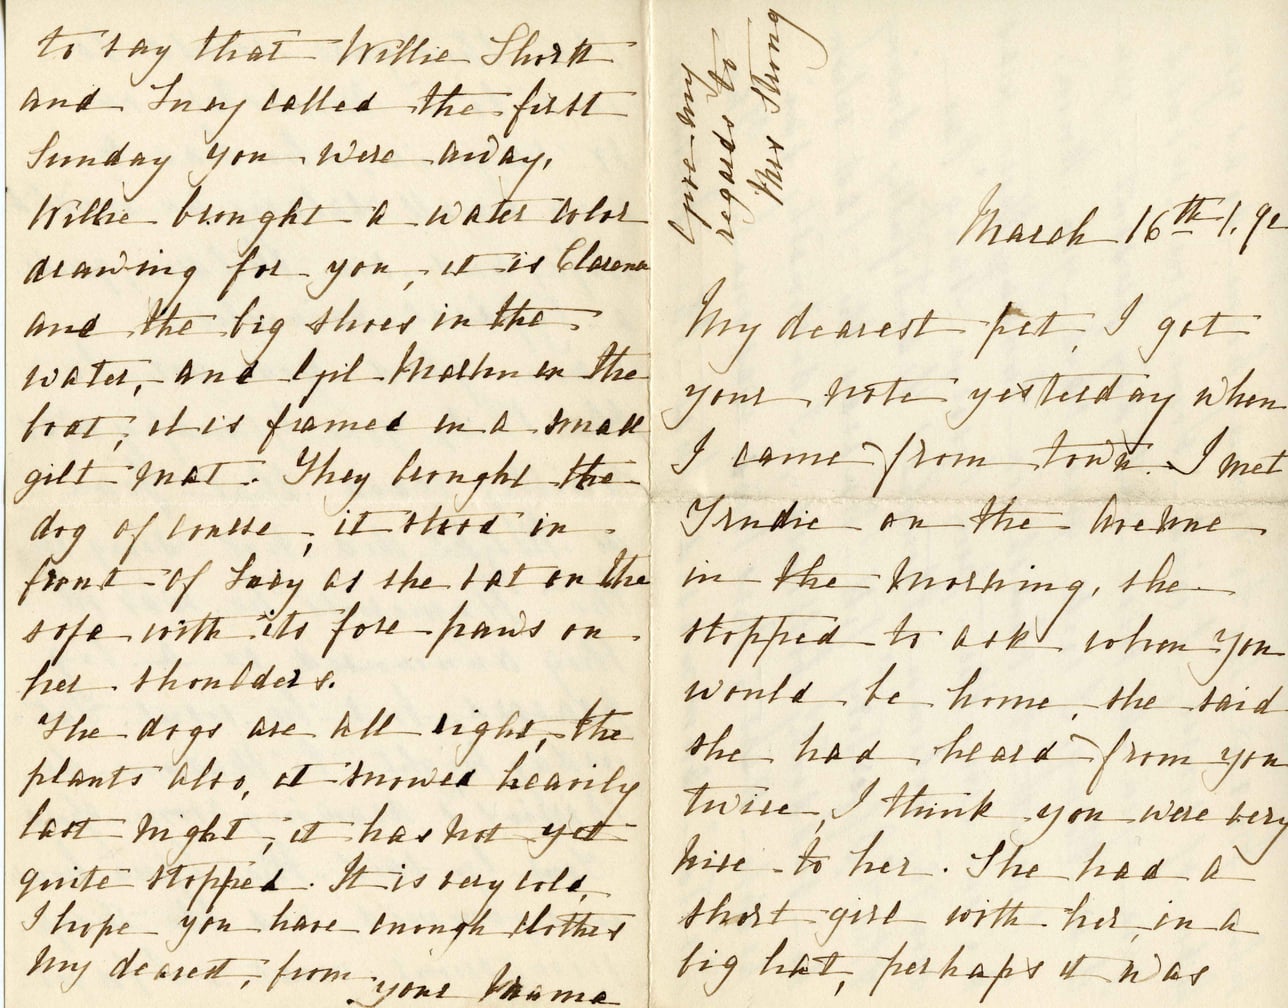 give my
regards to
Mrs Strong
March 16th 1.9
My dearest pet, I got
your note yesterday when
I came from town. I met
Trudie on the Avenue
in the morning, she
stopped to ask when you
would be home, she said
she had heard from you
twice, I think you were very
nice to her. She had a
short girl with her, in a
big hat, perhaps it was
to say that Willie Short
and Lucy called the first
Sunday you were away,
Willie brought a water color
drawing for you, it is Clarence
and the big shoes in the
water, and in the
boat, it is framed in a small
gilt mat. They brought the
dog of course, it stood in
front of Lucy as she sat on the
sofa with its fore paws on
her shoulders.
The dogs are all right, the
plants also, it snowed heavily
last night, it has not yet
quite stopped. It is very cold,
I hope you have enough clothes
My dearest, from
your Mama